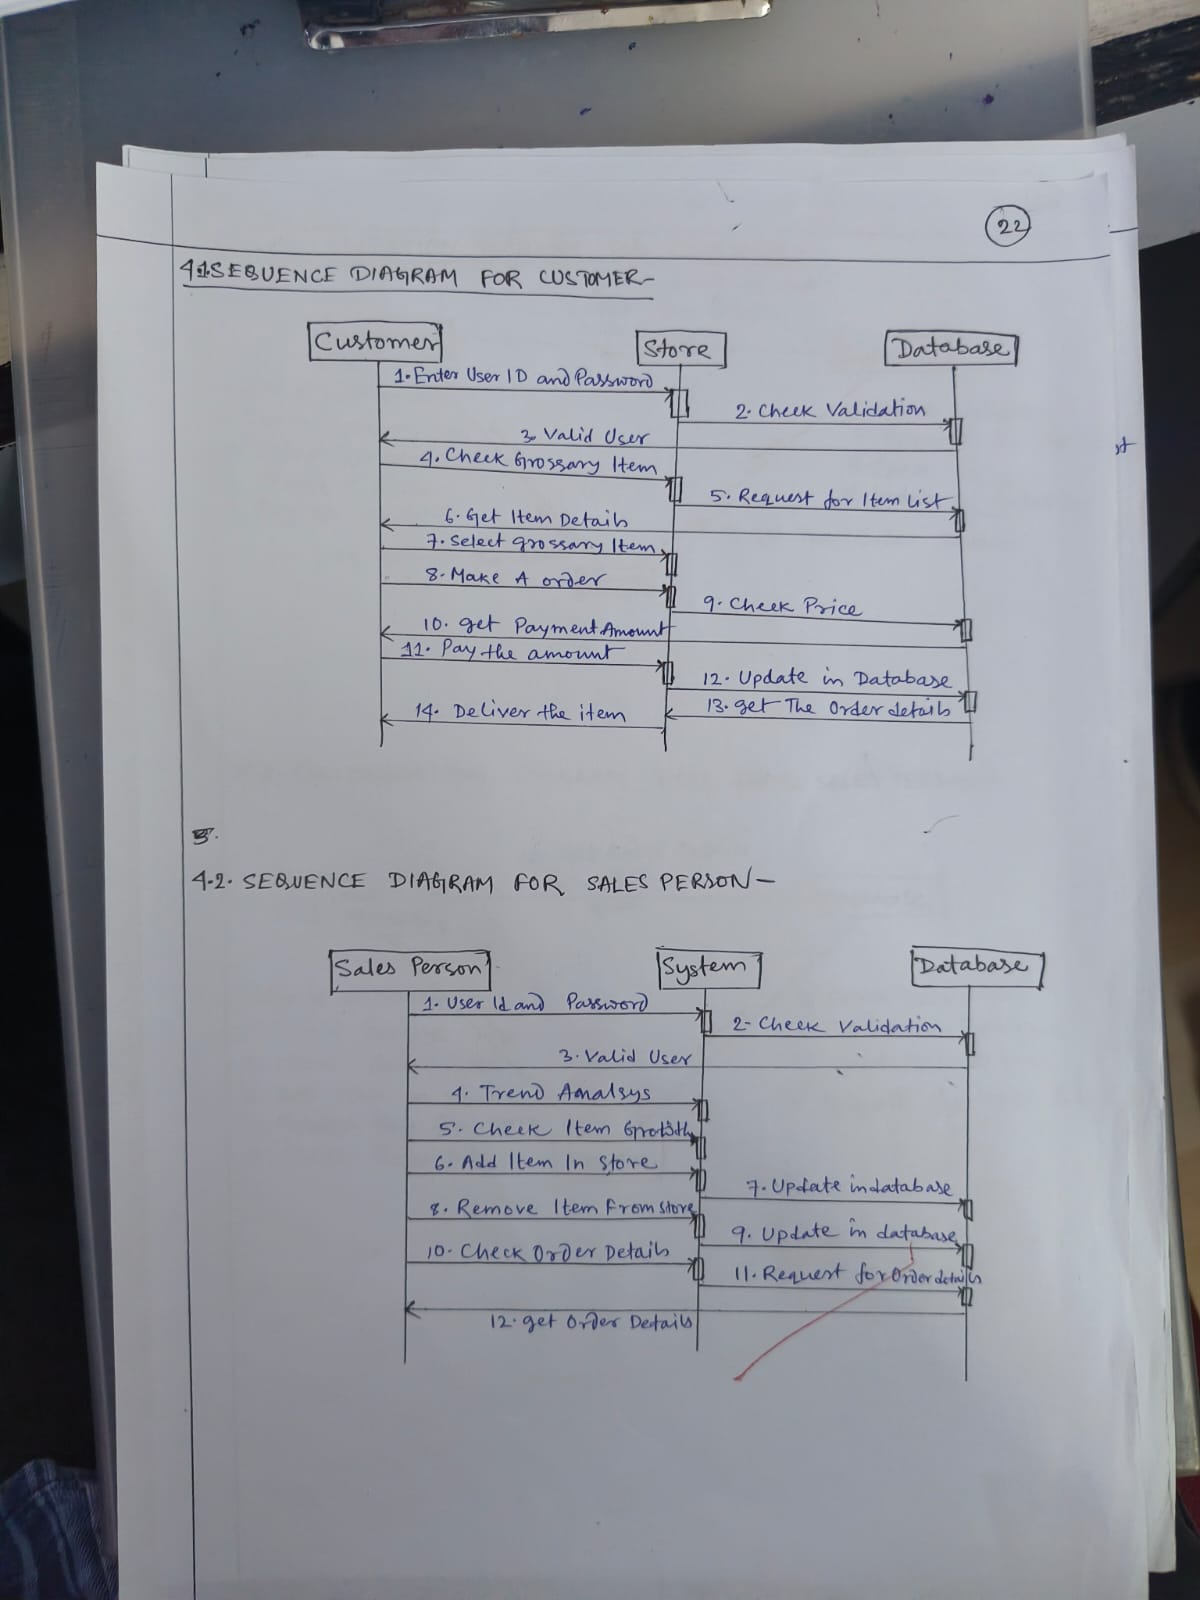 22
4.1.SEQUENCE DIAGRAM FOR CUSTOMER-
Customer Store Database
1. Enter User ID and Password
2. Check Validation
3. Valid User
4. Check Grossary Item
5. Request for Item List
6. Get Item Details
7. Select grossary Item
8. Make A order
9. Check Price
10. get Payment Amount
11. Pay the amount
12. Update in Database
13. get The Order details
14. Deliver the item
4.2. SEQUENCE DIAGRAM FOR SALES PERSON-
Sales Person System Database
1. User Id and Password
2- Check Validation
3. Valid User
4. Trend Analsys
5. Check Item
6. Add Item In Store
7. Update in database
8. Remove Item From store
9. Update in database
10. Check Order Details
11. Request for Order details
12. get Order Details